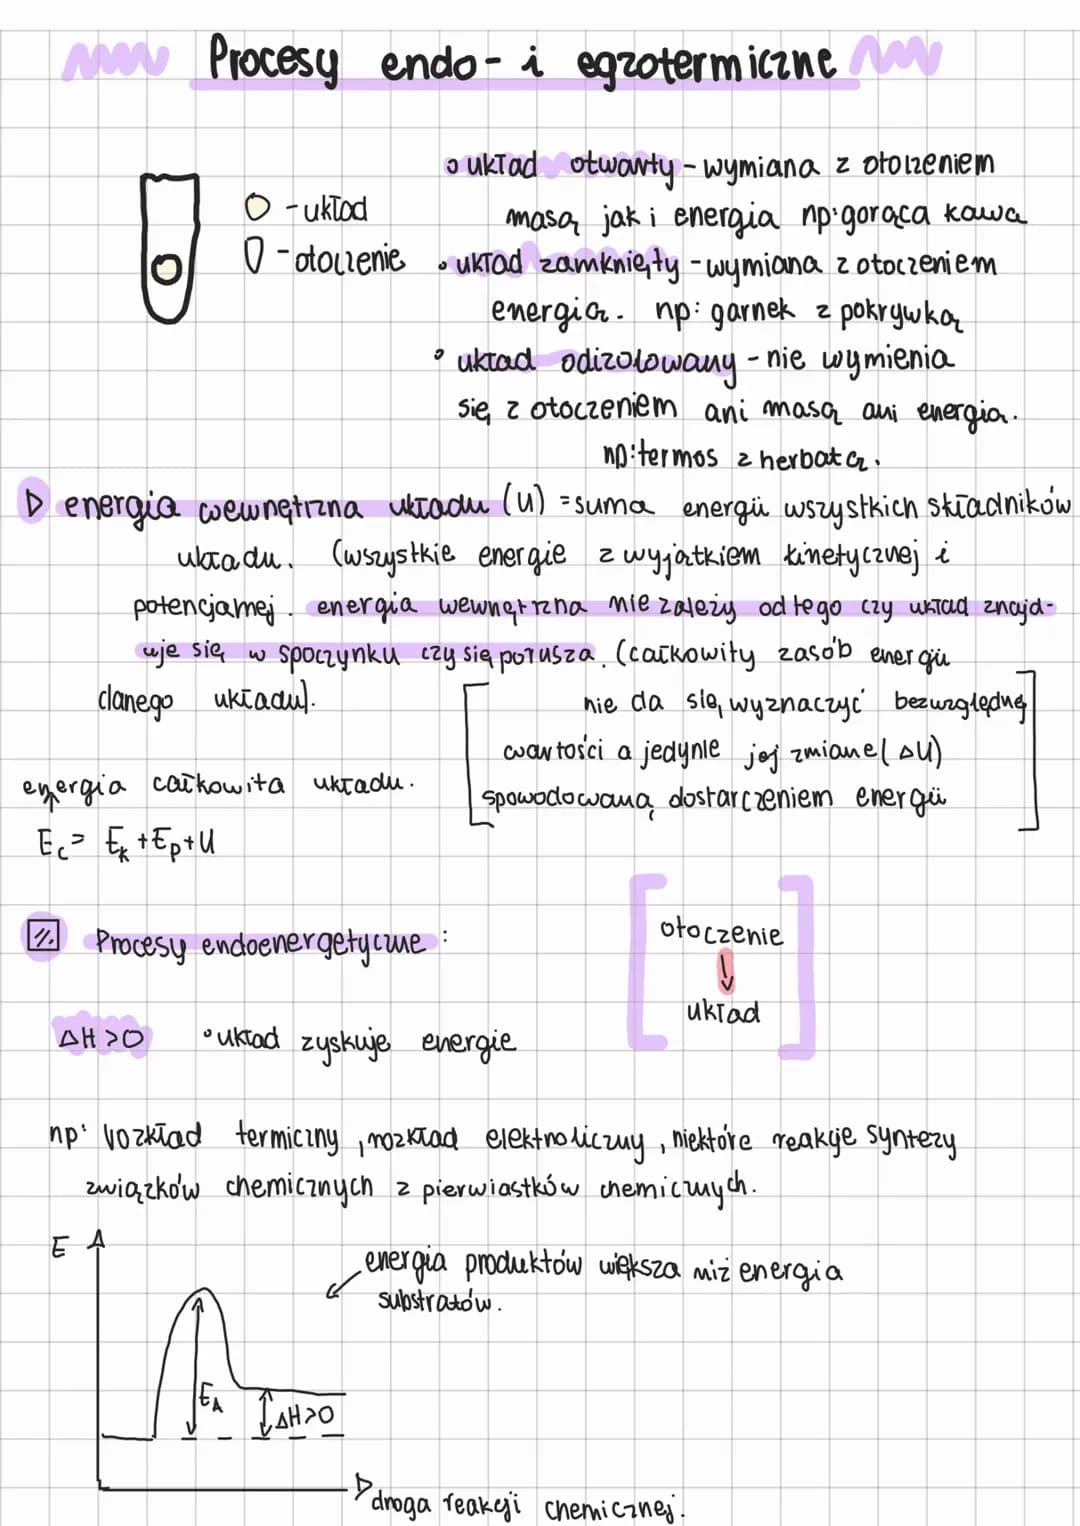 Procesy endo- i egzotermiczne
- układ
- otoczenie
układ otwarty - wymiana z otoczeniem
masą jak i energią np: gorąca kawa
układ zamknięty - wymiana z otoczeniem
energią. np: garnek z pokrywką
układ odizolowany - nie wymienia
się z otoczeniem ani masą ani energią.
np: termos z herbatą.
energia wewnętrzna układu (U) = suma energii wszystkich składników
układu. (wszystkie energie z wyjątkiem kinetycznej i
potencjalnej. energia wewnętrzna nie zależy od tego czy układ znajd-
uje się w spoczynku czy się porusza. (całkowity zasób energii
danego układu).
nie da się wyznaczyć bezwzględnej
wartości a jedynie jej zmianę (ΔU)
spowodowaną dostarczeniem energii
energia całkowita układu.
Ec = Ek + Ep + U
1. Procesy endoenergetyczne:
otoczenie
↓
układ
ΔH > 0 • układ zyskuje energie
np: rozkład termiczny, rozkład elektroliczny, niektóre reakcje syntezy
związków chemicznych z pierwiastków chemicznych.
E
energia produktów większa niż energia
substratów.
EA
ΔH > 0
droga reakcji chemicznej.